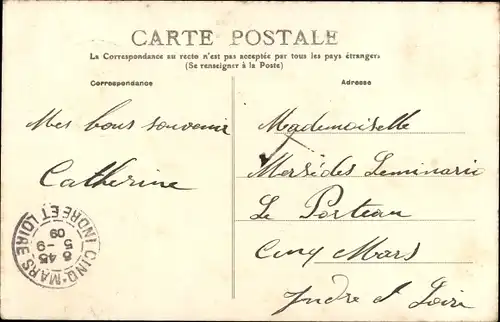 CARTE POSTALE
La Correspondance au recto n'est pas acceptée par tous les pays étrangers
(Se renseigner à la Poste)
Correspondance
Mes bons souvenir
Catherine
Adresse
Mademoiselle
Le Porteau
Cinq Mars
Indre et Loire
CINQ-MARS
INDRE ET LOIRE
6 45
5 -9
09